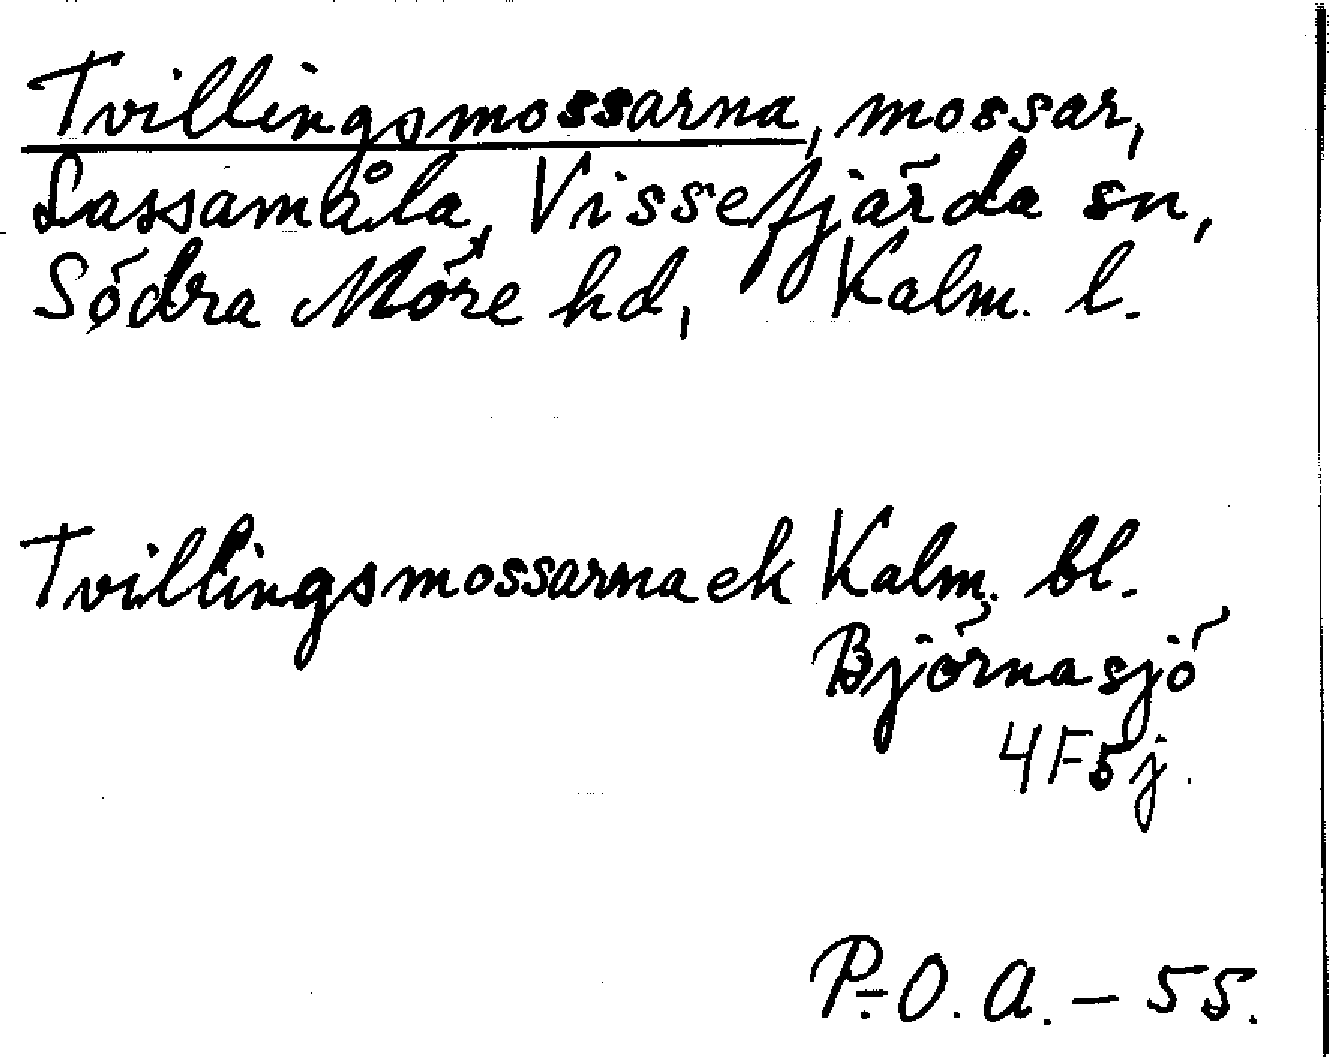 Tvillingsmossarna, mossar,
Lassamåla, Vissefjärda sn,
Södra Möre hd, Kalm. l.
Tvillingsmossarna ek Kalm. bl.
Björnasjö
4F5j.
P.-O. A. – 55.